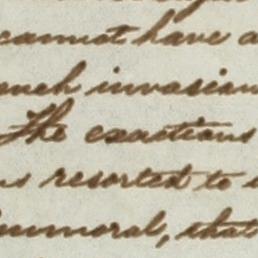 cannot have a
such invasion
The exactions
resorted to
immoral, that